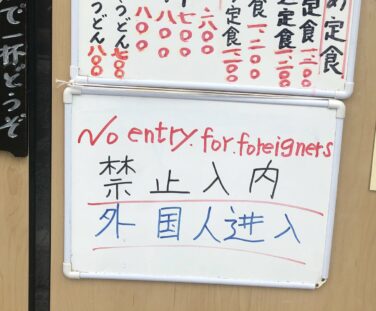 め定食
定食 一、二〇〇
定食 一、二〇〇
食 一、二〇〇
定食 一、一〇〇
六〇〇
七〇〇
八〇〇
八〇〇
うどん 七〇〇
うどん 八〇〇
で一杯どうぞ
No entry for foreigners
禁止入内
外国人进入